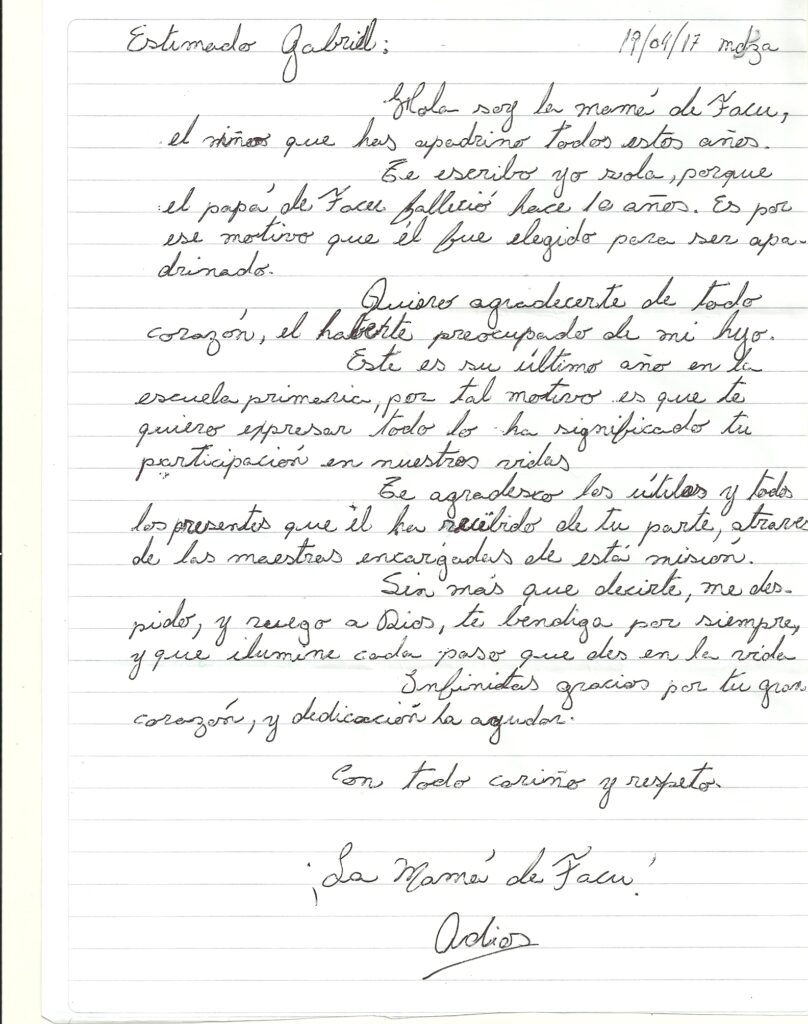 Estimado Gabriel: 19/04/17 mdza
Hola soy la mamá de Facu,
el niño que has apadrino todos estos años.
Te escribo yo sola, porque
el papá de Facu falleció hace 10 años. Es por
ese motivo que él fue elegido para ser apa-
drinado.
Quiero agradecerte de todo
corazón, el haberte preocupado de mi hijo.
Este es su último año en la
escuela primaria, por tal motivo es que te
quiero expresar todo lo ha significado tu
participación en nuestros vidas
Te agradesco los útiles y todos
los presentes que él ha recibido de tu parte, atraves
de las maestras encargadas de está misión.
Sin más que decirte, me des-
pido, y ruego a Dios, te bendiga por siempre,
y que ilumine cada paso que des en la vida
Infinitas gracias por tu gran
corazón, y dedicación ha ayudar.
Con todo cariño y respeto.
¡La Mamá de Facu!
Adios